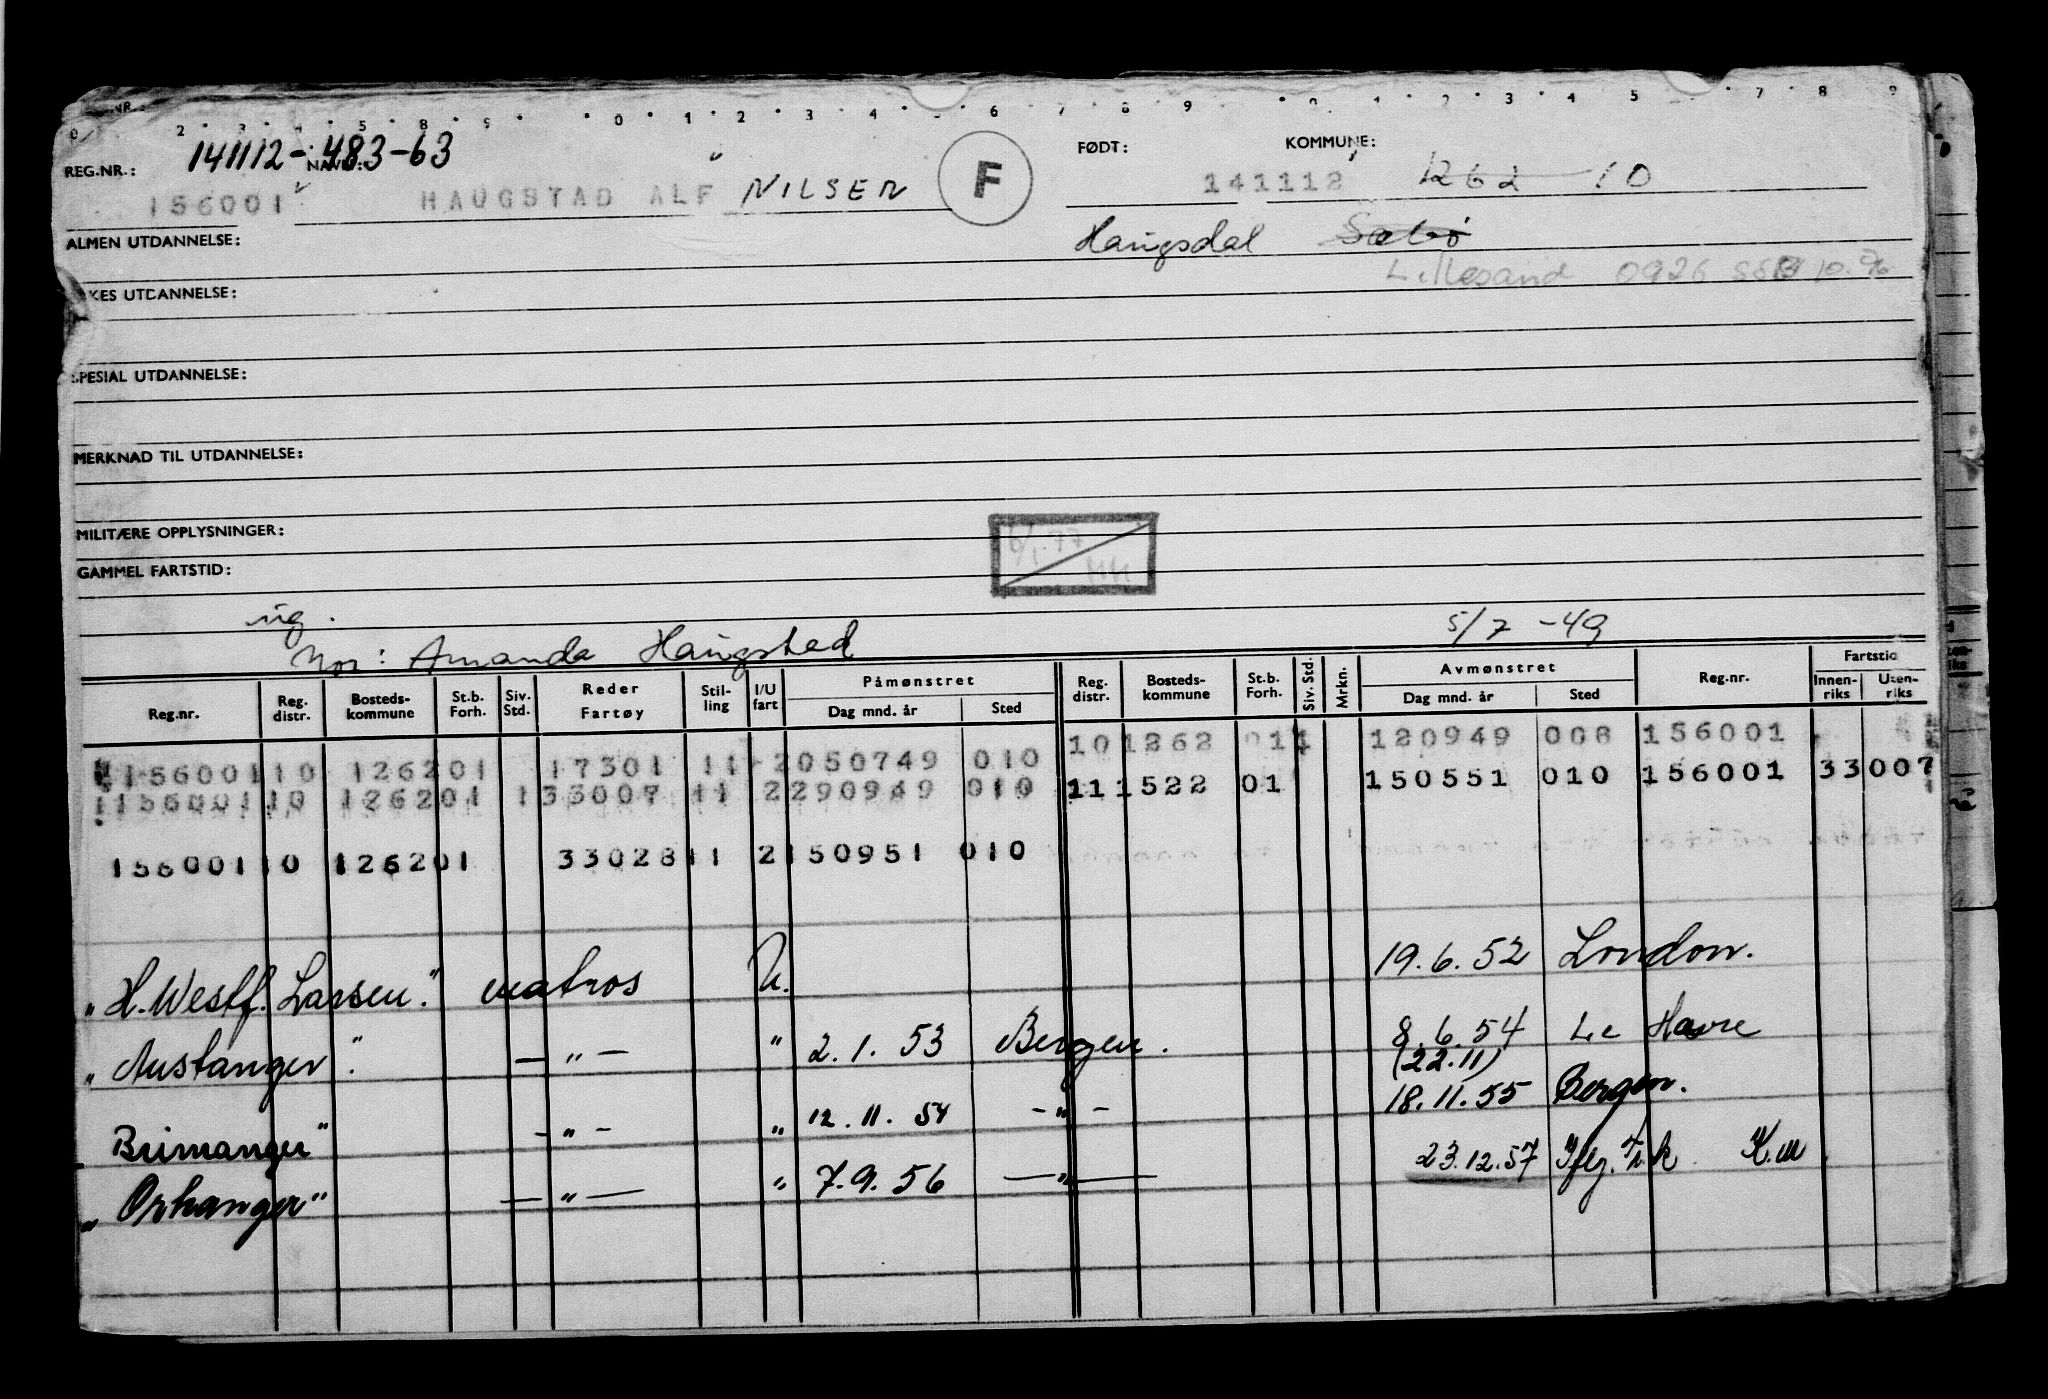 REG.NR.: 141112-483-63 FØDT: KOMMUNE:
156001 HAUGSTAD ALF NILSEN F 141112 1262 10
ALMEN UTDANNELSE: Haugsdal Sæbø
Lillesand 0926
KES UTDANNELSE:
SPESIAL UTDANNELSE:
MERKNAD TIL UTDANNELSE:
MILITÆRE OPPLYSNINGER:
GAMMEL FARTSTID:
ug. 5/7-49
Mor: Amanda Haugstad
Reg.nr. Reg. distr. Bosteds-kommune St.b. Forh. Siv. Std. Reder Fartøy Stil-ling I/U fart Påmønstret Dag mnd. år Sted Reg. distr. Bosteds-kommune St.b. Forh. Siv. Std. Mrkn. Avmønstret Dag mnd. år Sted Reg.nr. Fartstid Innen-riks Uten-riks
156001 10 1262 01 17301 11 2 050749 010 10 1262 011 120949 008 156001
1156001 10 1262 01 1 33007 11 2 290949 010 11 1522 01 150551 010 156001 33007
156001 10 1262 01 33028 11 2 150951 010
"H. Westf. Larsen." matros U. 19.6.52 London.
"Austanger". — " — " 2.1.53 Bergen. 8.6.54 Le Havre
(22.11)
Brimanger" - " - " 12.11.54 - " - 18.11.55 Bergen.
"Orkanger" — " — " 7.9.56 — " — 23.12.57